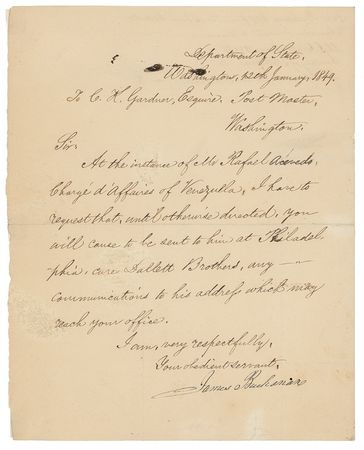 Department of State,
Washington, 12th January, 1849.
To C. K. Gardner, Esquire, Post Master,
Washington.
Sir:
At the instance of Mr Rafael Acevedo,
Chargé d'Affaires of Venezuela, I have to
request that, until otherwise directed, you
will cause to be sent to him at Philadel-
phia, care Dallett Brothers, any —
communications to his address which may
reach your office.
I am, very respectfully,
Your obedient servant,
James Buchanan